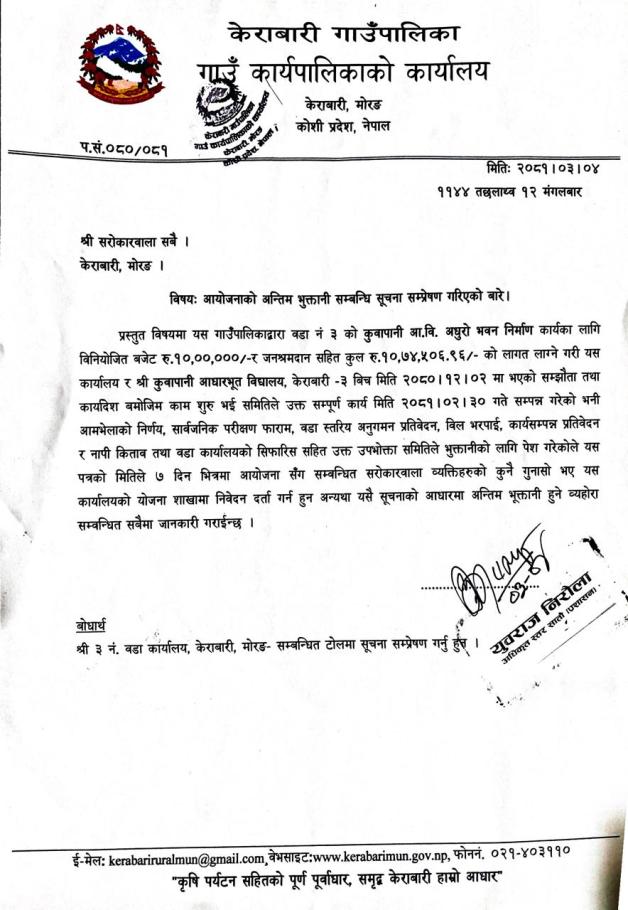 केराबारी गाउँपालिका
गाउँ कार्यपालिकाको कार्यालय
केराबारी, मोरङ
कोशी प्रदेश, नेपाल
केराबारी गाउँपालिका
गाउँ कार्यपालिकाको कार्यालय
केराबारी, मोरङ
कोशी प्रदेश, नेपाल
प.सं.०८०/०८१
मितिः २०८१।०३।०४
११४४ तछलाथ्व १२ मंगलबार
श्री सरोकारवाला सबै ।
केराबारी, मोरङ ।
विषयः आयोजनाको अन्तिम भुक्तानी सम्बन्धि सूचना सम्प्रेषण गरिएको बारे।
प्रस्तुत विषयमा यस गाउँपालिकाद्वारा वडा नं ३ को कुबापानी आ.वि. अधुरो भवन निर्माण कार्यका लागि
विनियोजित बजेट रु.१०,००,०००/-र जनश्रमदान सहित कुल रु.१०,७४,५०६.९६/- को लागत लाग्ने गरी यस
कार्यालय र श्री कुबापानी आधारभूत विद्यालय, केराबारी -३ बिच मिति २०८०।१२।०२ मा भएको सम्झौता तथा
कार्यदिश बमोजिम काम शुरु भई समितिले उक्त सम्पूर्ण कार्य मिति २०८१।०२।३० गते सम्पन्न गरेको भनी
आमभेलाको निर्णय, सार्वजनिक परीक्षण फाराम, वडा स्तरिय अनुगमन प्रतिवेदन, विल भरपाई, कार्यसम्पन्न प्रतिवेदन
र नापी किताव तथा वडा कार्यालयको सिफारिस सहित उक्त उपभोक्ता समितिले भुक्तानीको लागि पेश गरेकोले यस
पत्रको मितिले ७ दिन भित्रमा आयोजना सँग सम्बन्धित सरोकारवाला व्यक्तिहरुको कुनै गुनासो भए यस
कार्यालयको योजना शाखामा निवेदन दर्ता गर्न हुन अन्यथा यसै सूचनाको आधारमा अन्तिम भूक्तानी हुने व्यहोरा
सम्वन्धित सबैमा जानकारी गराईन्छ ।
युवराज निरौला
बोधार्थ
श्री ३ नं. वडा कार्यालय, केराबारी, मोरङ- सम्बन्धित टोलमा सूचना सम्प्रेषण गर्नु हुन ।
ई-मेल: kerabariruralmun@gmail.com, वेभसाइट:www.kerabarimun.gov.np, फोननं. ०२१-४०३११०
"कृषि पर्यटन सहितको पूर्ण पूर्वाधार, समृद्ध केराबारी हाम्रो आधार"